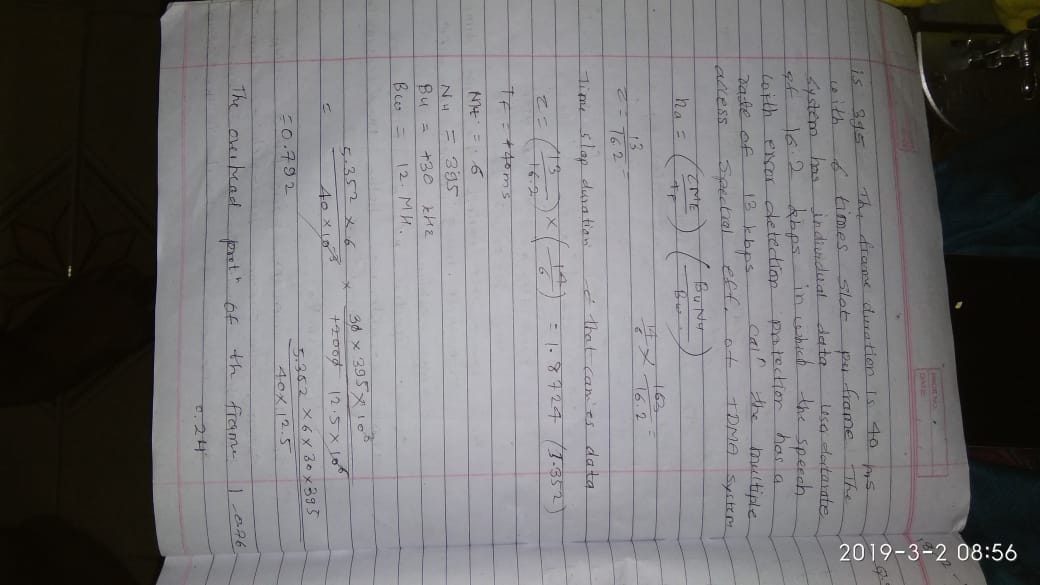 is 395 The frame duration is 40 ms
with 6 times slot per frame. The
system has individual data user datarate
of 16.2 kbps in which the speech
with error detection protection has a
rate of 13 kbps calⁿ the multiple
access Spectral eff. of TDMA system
na = (τME / TF) (BuNu / Bw)
τ = 13/16.2 =
Time slop duration that carries data
τ = (13/16.2) × (14/6) = 1.8724 (5.352)
TF = 40ms
Mt = 6
Nu = 395
Bu = 30 kHz
Bw = 12. MH.
= 5.352 × 6 / 40 × 10⁻³ × 30 × 395 × 10³ / 12.5 × 10⁶
5.352 × 6 × 30 × 395 / 40 × 12.5
= 0.792
The overhead portⁿ of th frame
0.24
2019-3-2 08:56